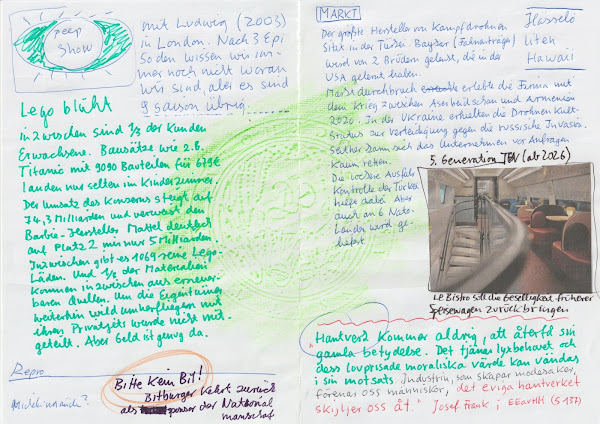 peep
Show
mit Ludwig (2003)
in London. Nach 3 Epi
So den wissen wir im-
mer noch nicht woran
wir sind, aber es sind
9 saison übrig
Lego blüht
inzwischen sind 1/3 der Kunden
Erwachsene. Bausätze wie z.B.
Titanic mit 9090 Bauteilen für 679€
landen nur selten im Kinderzimmer.
Der Umsatz des Konzerns steigt auf
74,3 Milliarden und verweist den
Barbie-Hersteller Mattel deutlich
auf Platz 2 mit nur 5 Milliarden.
Inzwischen gibt es 1069 reine Lego-
Läden. Und 1/3 der Materialien
kommen inzwischen aus erneuer-
baren Quellen. Um die Eigentümer
weiterhin wild umherfliegen mit
ihren Privatjets wurde nicht mit-
geteilt. Aber Geld ist genug da.
Repro
Bitte kein Bit!
Bitburger kehrt zurück
als sponsor der National
mannschaf
MARKT
Der größte Hersteller von Kampfdrohnen
Sitzt in der Türkei. Baykar (Fahnenträger)
wird von 2 Brüdern geleitet, die in der
USA gelernt haben.
Marktdurchbruch erlebte die Firma mit
dem Krieg zwischen Aserbeidschan und Armenien
2020. In der Ukraine erhielten die Drohnen Kult-
Status zur Verteidigung gegen die russische Invasion.
seither kann sich das Unternehmen vor Anfragen
kaum retten.
Die lockere Ausfuhr
Kontrolle der Türkei
hilft dabei. Aber
auch an 6 Nato-
Länder wird ge-
liefert
Hasselö
liten
Hawaii
5. Generation TGV (ab 2026)
Le Bistro soll die Geselligkeit früherer
Speisewagen zurückbringen
Hantverk kommer aldrig, att återfå sin
gamla betydelse. Det tjänar lyxbehovet och
dess lovprisade moraliska värde kan vändas
i sin motsats. Industrin, som skapar modesaker,
förenar oss människor, det eviga hantverket
skiljer oss åt." Josef Frank i EEavHH (S 137)